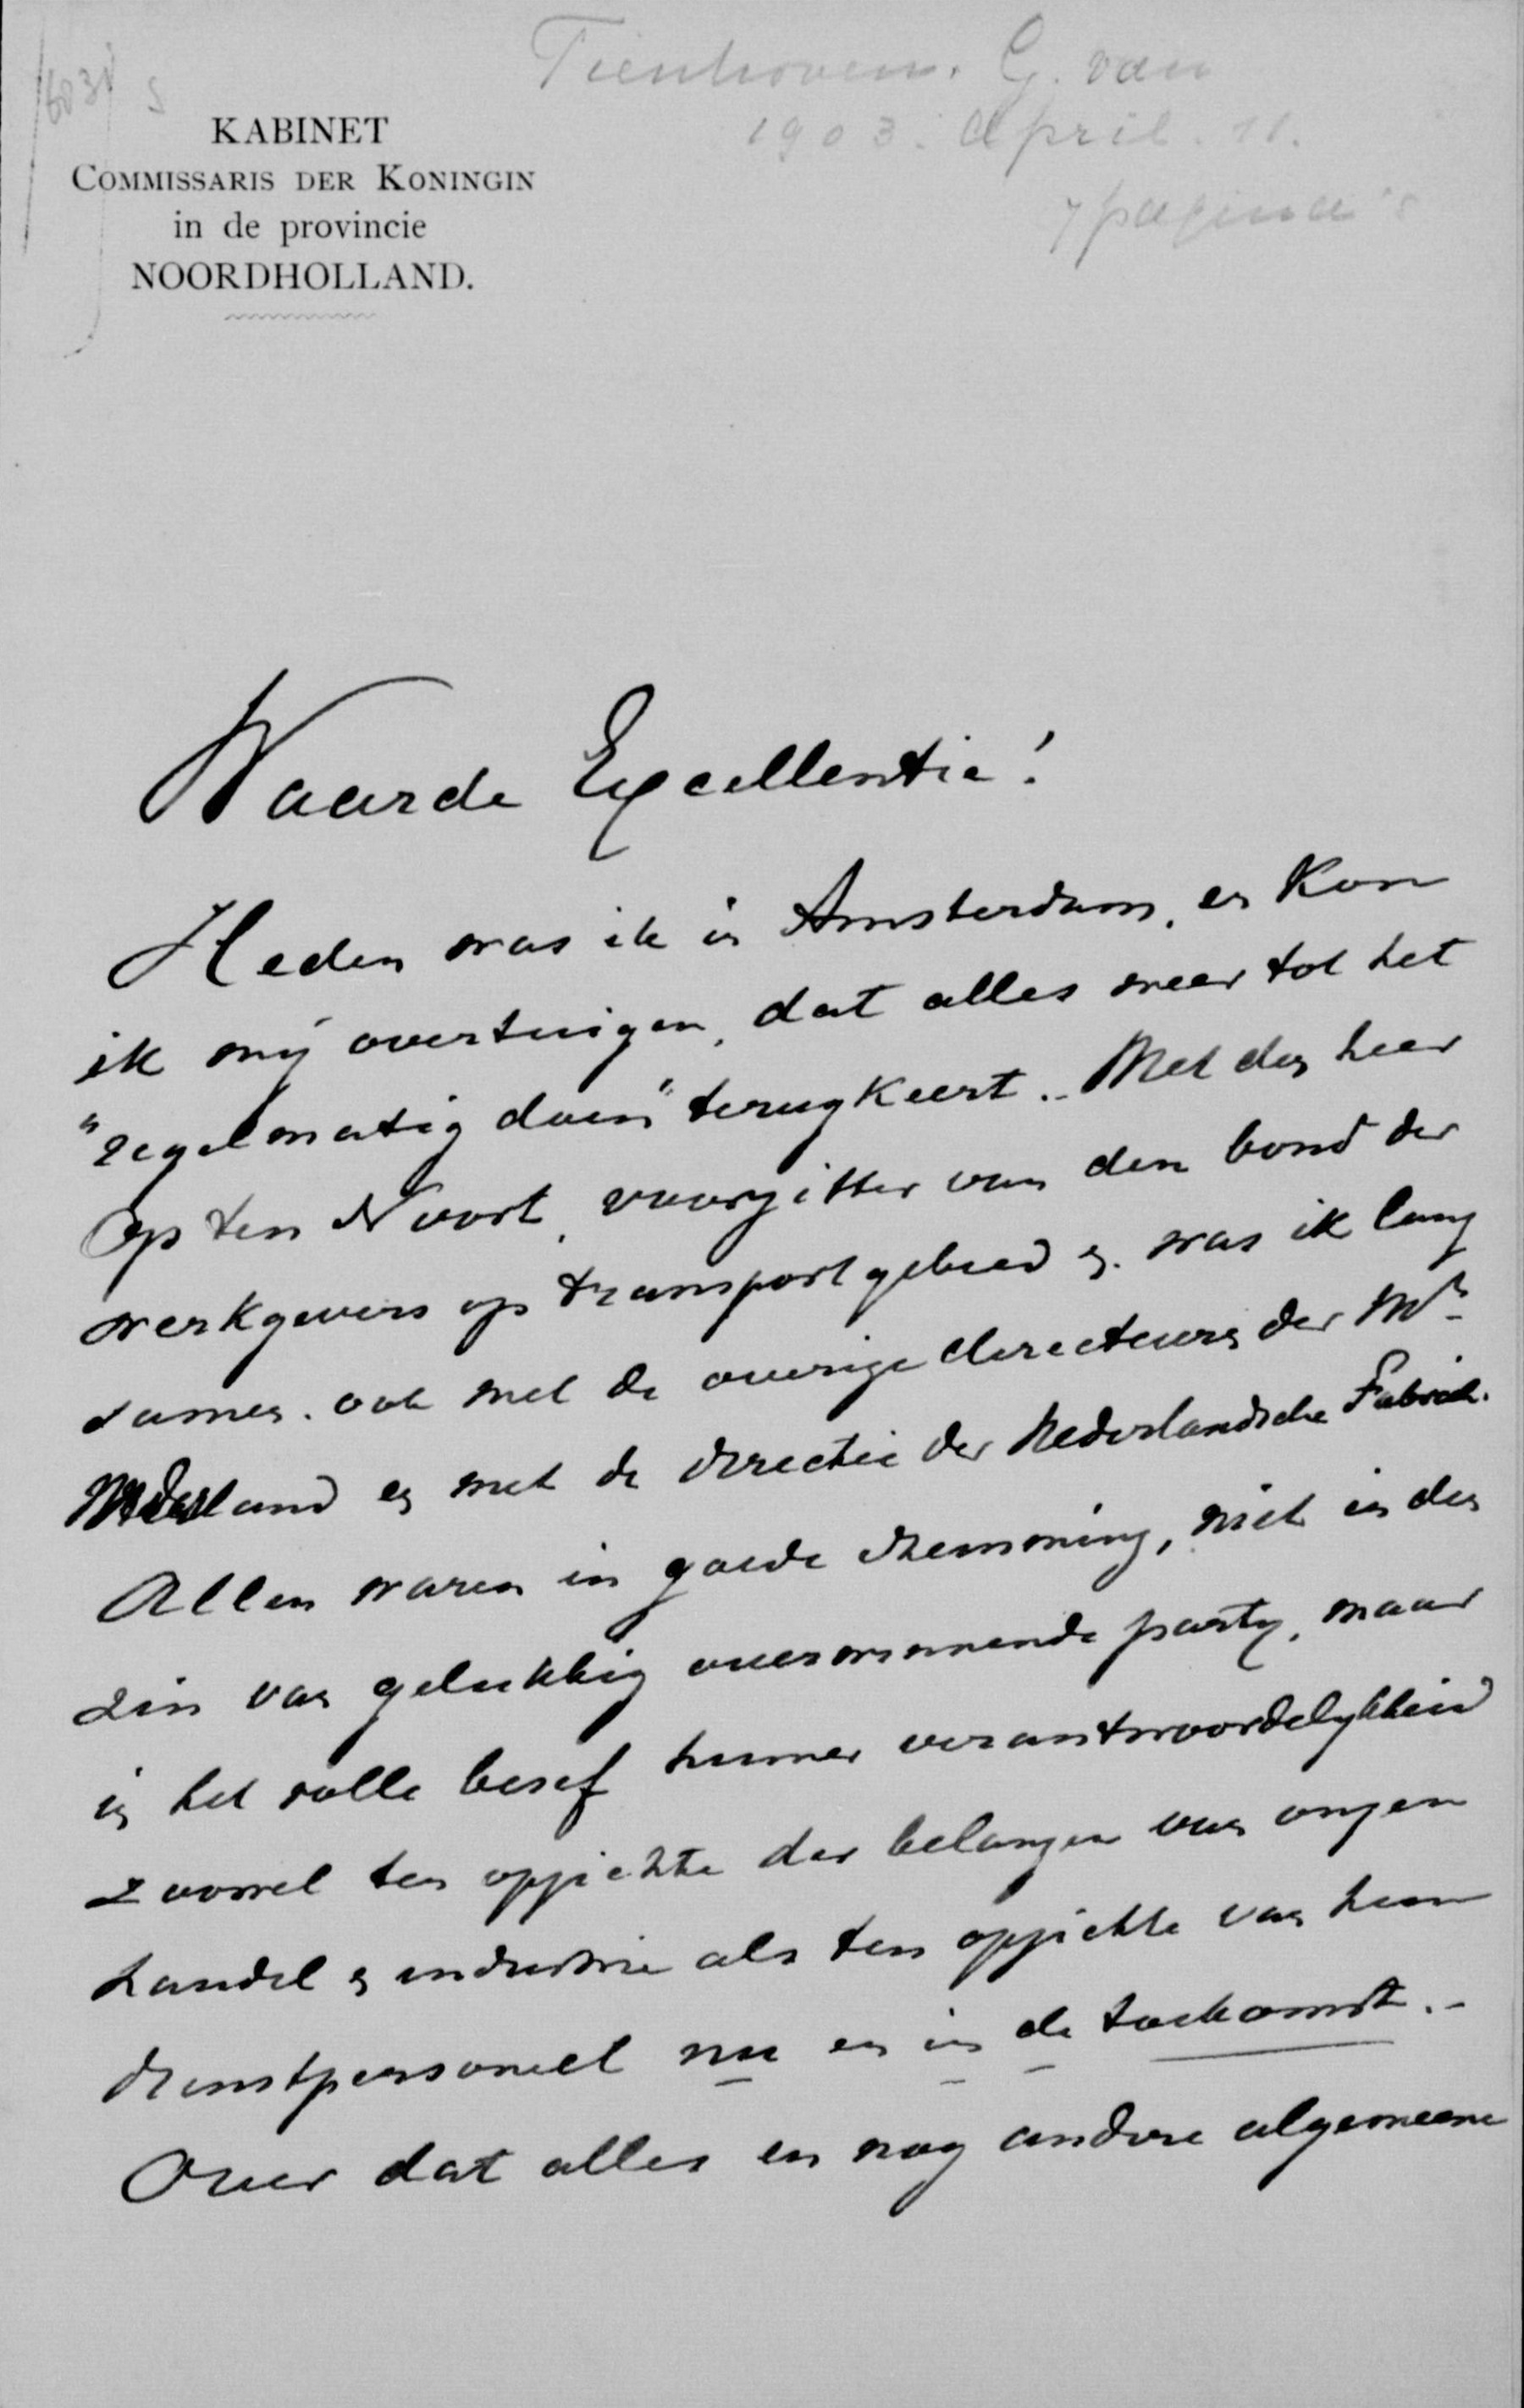 Tienhoven. G. van
1903. April. 11.
7 pagina's
KABINET
COMMISSARIS DER KONINGIN
in de provincie
NOORDHOLLAND.
Waarde Excellentie!
Heden was ik in Amsterdam, en kon
ik mij overtuigen, dat alles weer tot het
"regelmatig doen" terugkeert. - Met den heer
Op ten Noort, voorzitter van den bond der
werkgevers op transportgebied was ik lang
samen. ook met de overige directeuren der Mij
Nederland en met de directie der Nederlandsche Fabriek.
Allen waren in goede stemming, niet in den
zin van gelukkig overwinnende party, maar
in het volle besef hunner verantwoordelykheid
zoowel ten opzichte der belangen van onzen
handel en industrie als ten opzichte van hun
dienstpersoneel nu en in de toekomst. -
Over dat alles en nog andere algemeene